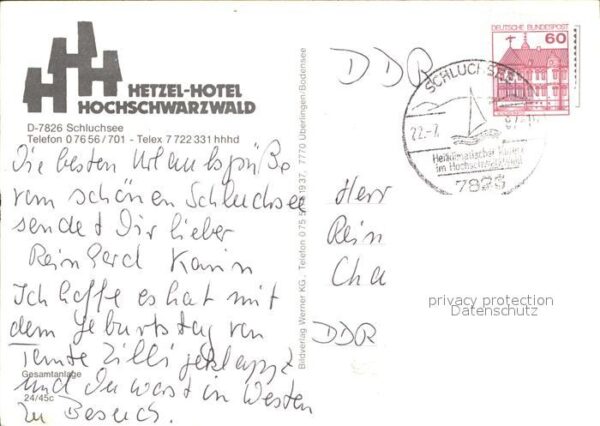 HETZEL-HOTEL
HOCHSCHWARZWALD
D-7826 Schluchsee
Telefon 0 76 56 / 701 - Telex 7 722 331 hhhd
Die besten Urlaubsgrüße
vom schönen Schluchsee
sendet Dir lieber
Reinhard Karin
Ich hoffe es hat mit
dem Geburtstag von
Tante Zilli geklappt
und Du warst in Westen
zu Besuch.
Gesamtanlage
24/45c
Bildverlag Werner KG., Telefon 0 75 19 37, 7770 Überlingen-Bodensee
DDR
DEUTSCHE BUNDESPOST
60
SCHLUCHSEE
22.-7.
Heilklimatischer Kurort
im Hochschwarzwald
7826
Herr
Rein
Cha
DDR
privacy protection
Datenschutz